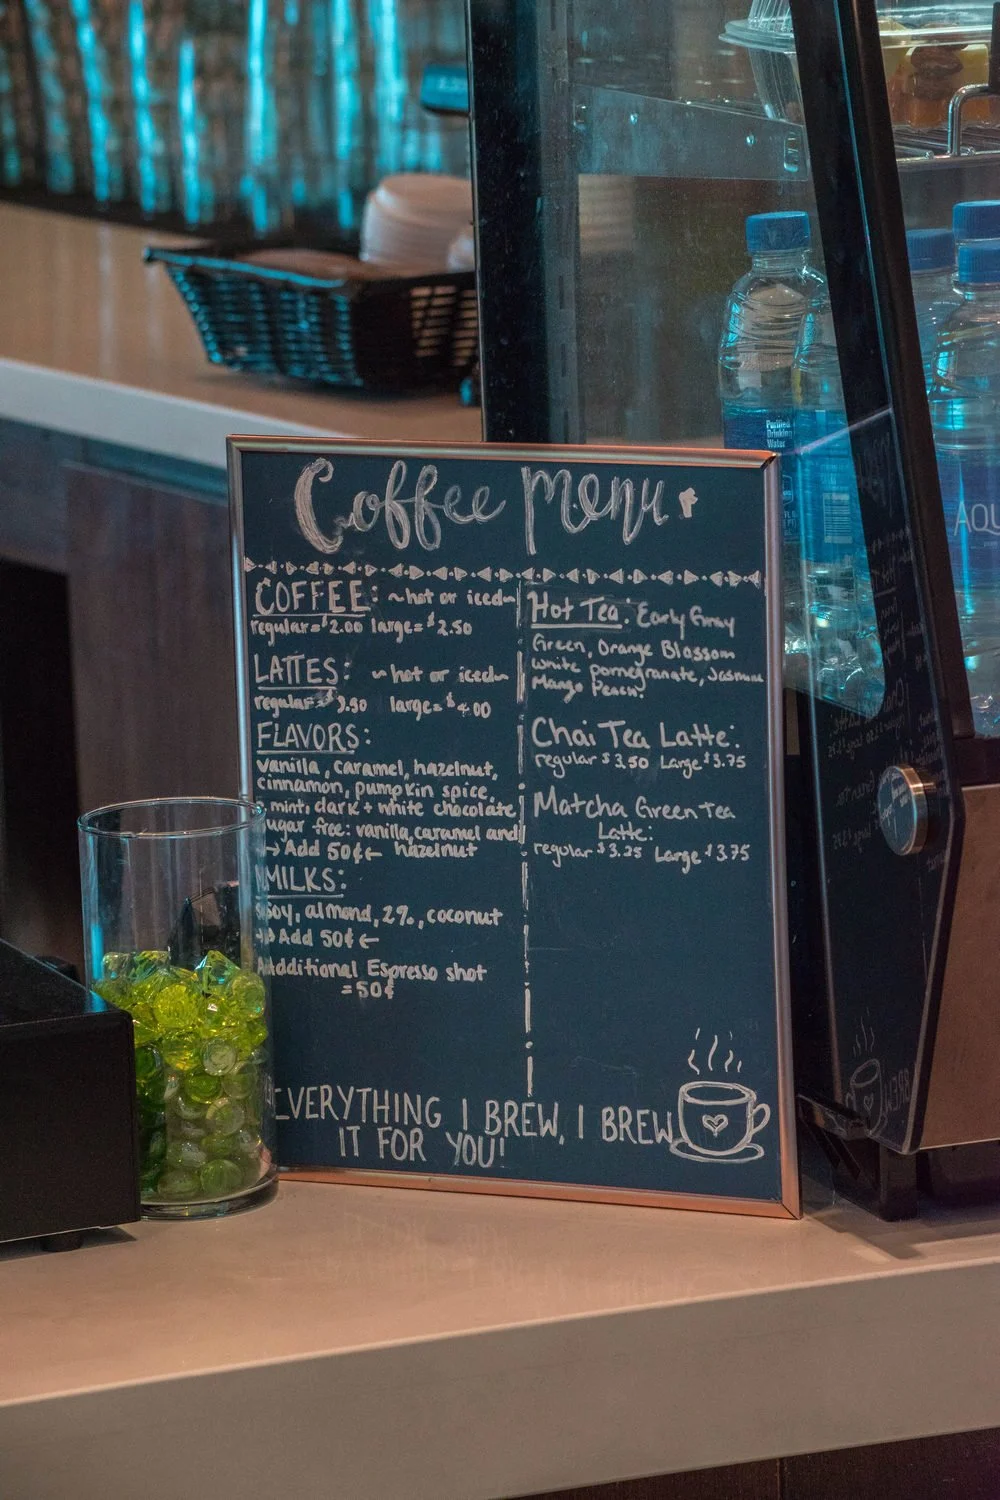 Coffee Menu
COFFEE: ~hot or iced~
regular=$2.00 large=$2.50
LATTES: ~hot or iced~
regular=$3.50 large=$4.00
FLAVORS:
vanilla, caramel, hazelnut,
cinnamon, pumpkin spice,
mint, dark + white chocolate
ugar free: vanilla, caramel and
→Add 50¢← hazelnut
MILKS:
Soy, almond, 2%, coconut
→Add 50¢←
Additional Espresso shot
=50¢
Hot Tea: Early Gray
Green, Orange Blossom
White pomegranate, Jasmine
Mango Peach
Chai Tea Latte:
regular $3.50 Large $3.75
Matcha Green Tea
Latte:
regular $3.25 Large $3.75
EVERYTHING I BREW, I BREW
IT FOR YOU!
Purified
Drinking
Water
AQU